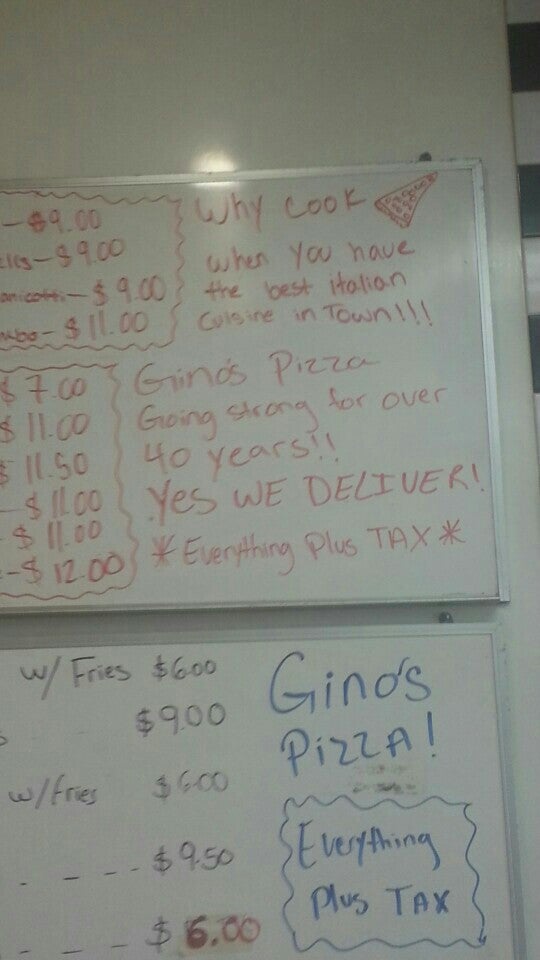 - $9.00
- $9.00
- $9.00
- $11.00
Why cook
when you have
the best italian
Cuisine in Town!!!
$7.00
$11.00
$11.50
- $11.00
$11.00
- $12.00
Gino's Pizza
Going strong for over
40 years!!
Yes WE DELIVER!
* Everything Plus TAX *
w/ Fries $6.00
$9.00
w/Fries $6.00
- - - - $9.50
- - - $6.00
Gino's
PIZZA!
Everything
Plus TAX